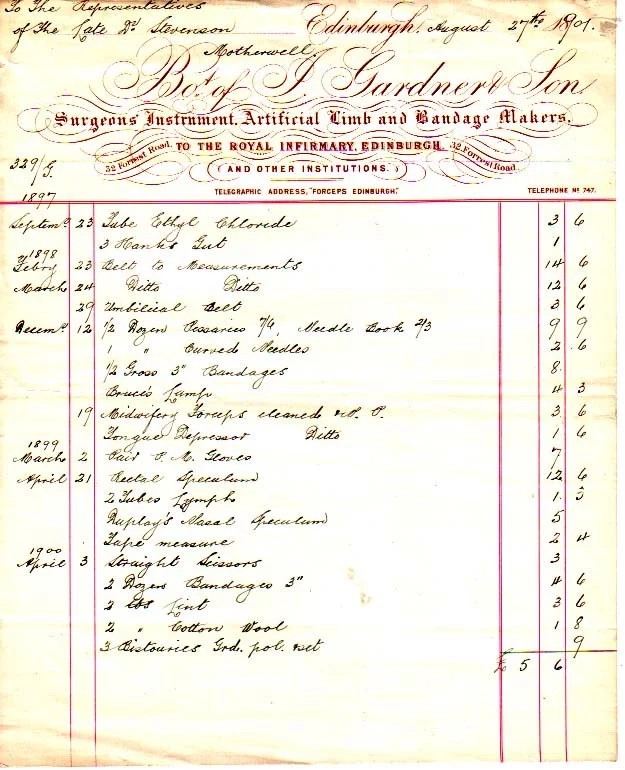 To The Representatives
of The Late Dr. Stevenson
Edinburgh, August 27th 1901.
Motherwell
Bot. of J. Gardner & Son
Surgeons' Instrument, Artificial Limb and Bandage Makers,
32 Forrest Road. TO THE ROYAL INFIRMARY, EDINBURGH. 32 Forrest Road
(AND OTHER INSTITUTIONS.)
329/G.
TELEGRAPHIC ADDRESS, "FORCEPS EDINBURGH." TELEPHONE No 747.
1897
Septemr 23 Tube Ethyl Chloride 3 6
3 Hanks Gut 1
1898
Febry 23 Belt to Measurements 14 6
March 24 Ditto Ditto 12 6
29 Umbilical Belt 3 6
Decemr 12 1/2 Dozen Pessaries 7/6, Needle Book 2/3 9 9
1 " Curved Needles 2 6
1/2 Gross 3" Bandages 8
Bruce's Lamp 4 3
19 Midwifery Forceps cleaned & P. 3 6
Tongue Depressor Ditto 1 6
1899
March 2 Pair P. M. Gloves 7
April 21 Rectal Speculum 12 6
2 Tubes Lymph 1 3
Duplay's Nasal Speculum 5
Tape measure 2 4
1900
April 3 Straight Scissors 3
2 Dozen Bandages 3" 4 6
2 lbs Lint 3 6
2 " Cotton Wool 1 8
3 Bistouries Grd. pol. & set 9
£ 5 6